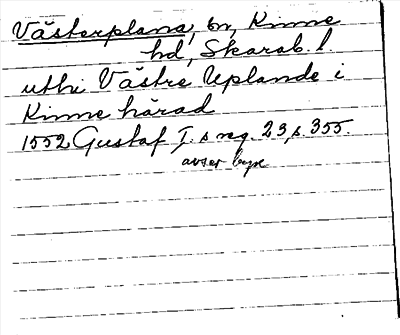 Västerplana, bn, Kinne
hd, Skarab. l.
uthi Västre Uplande i
Kinne härad
1552 Gustaf I.s reg. 23, s. 355.
avser byn